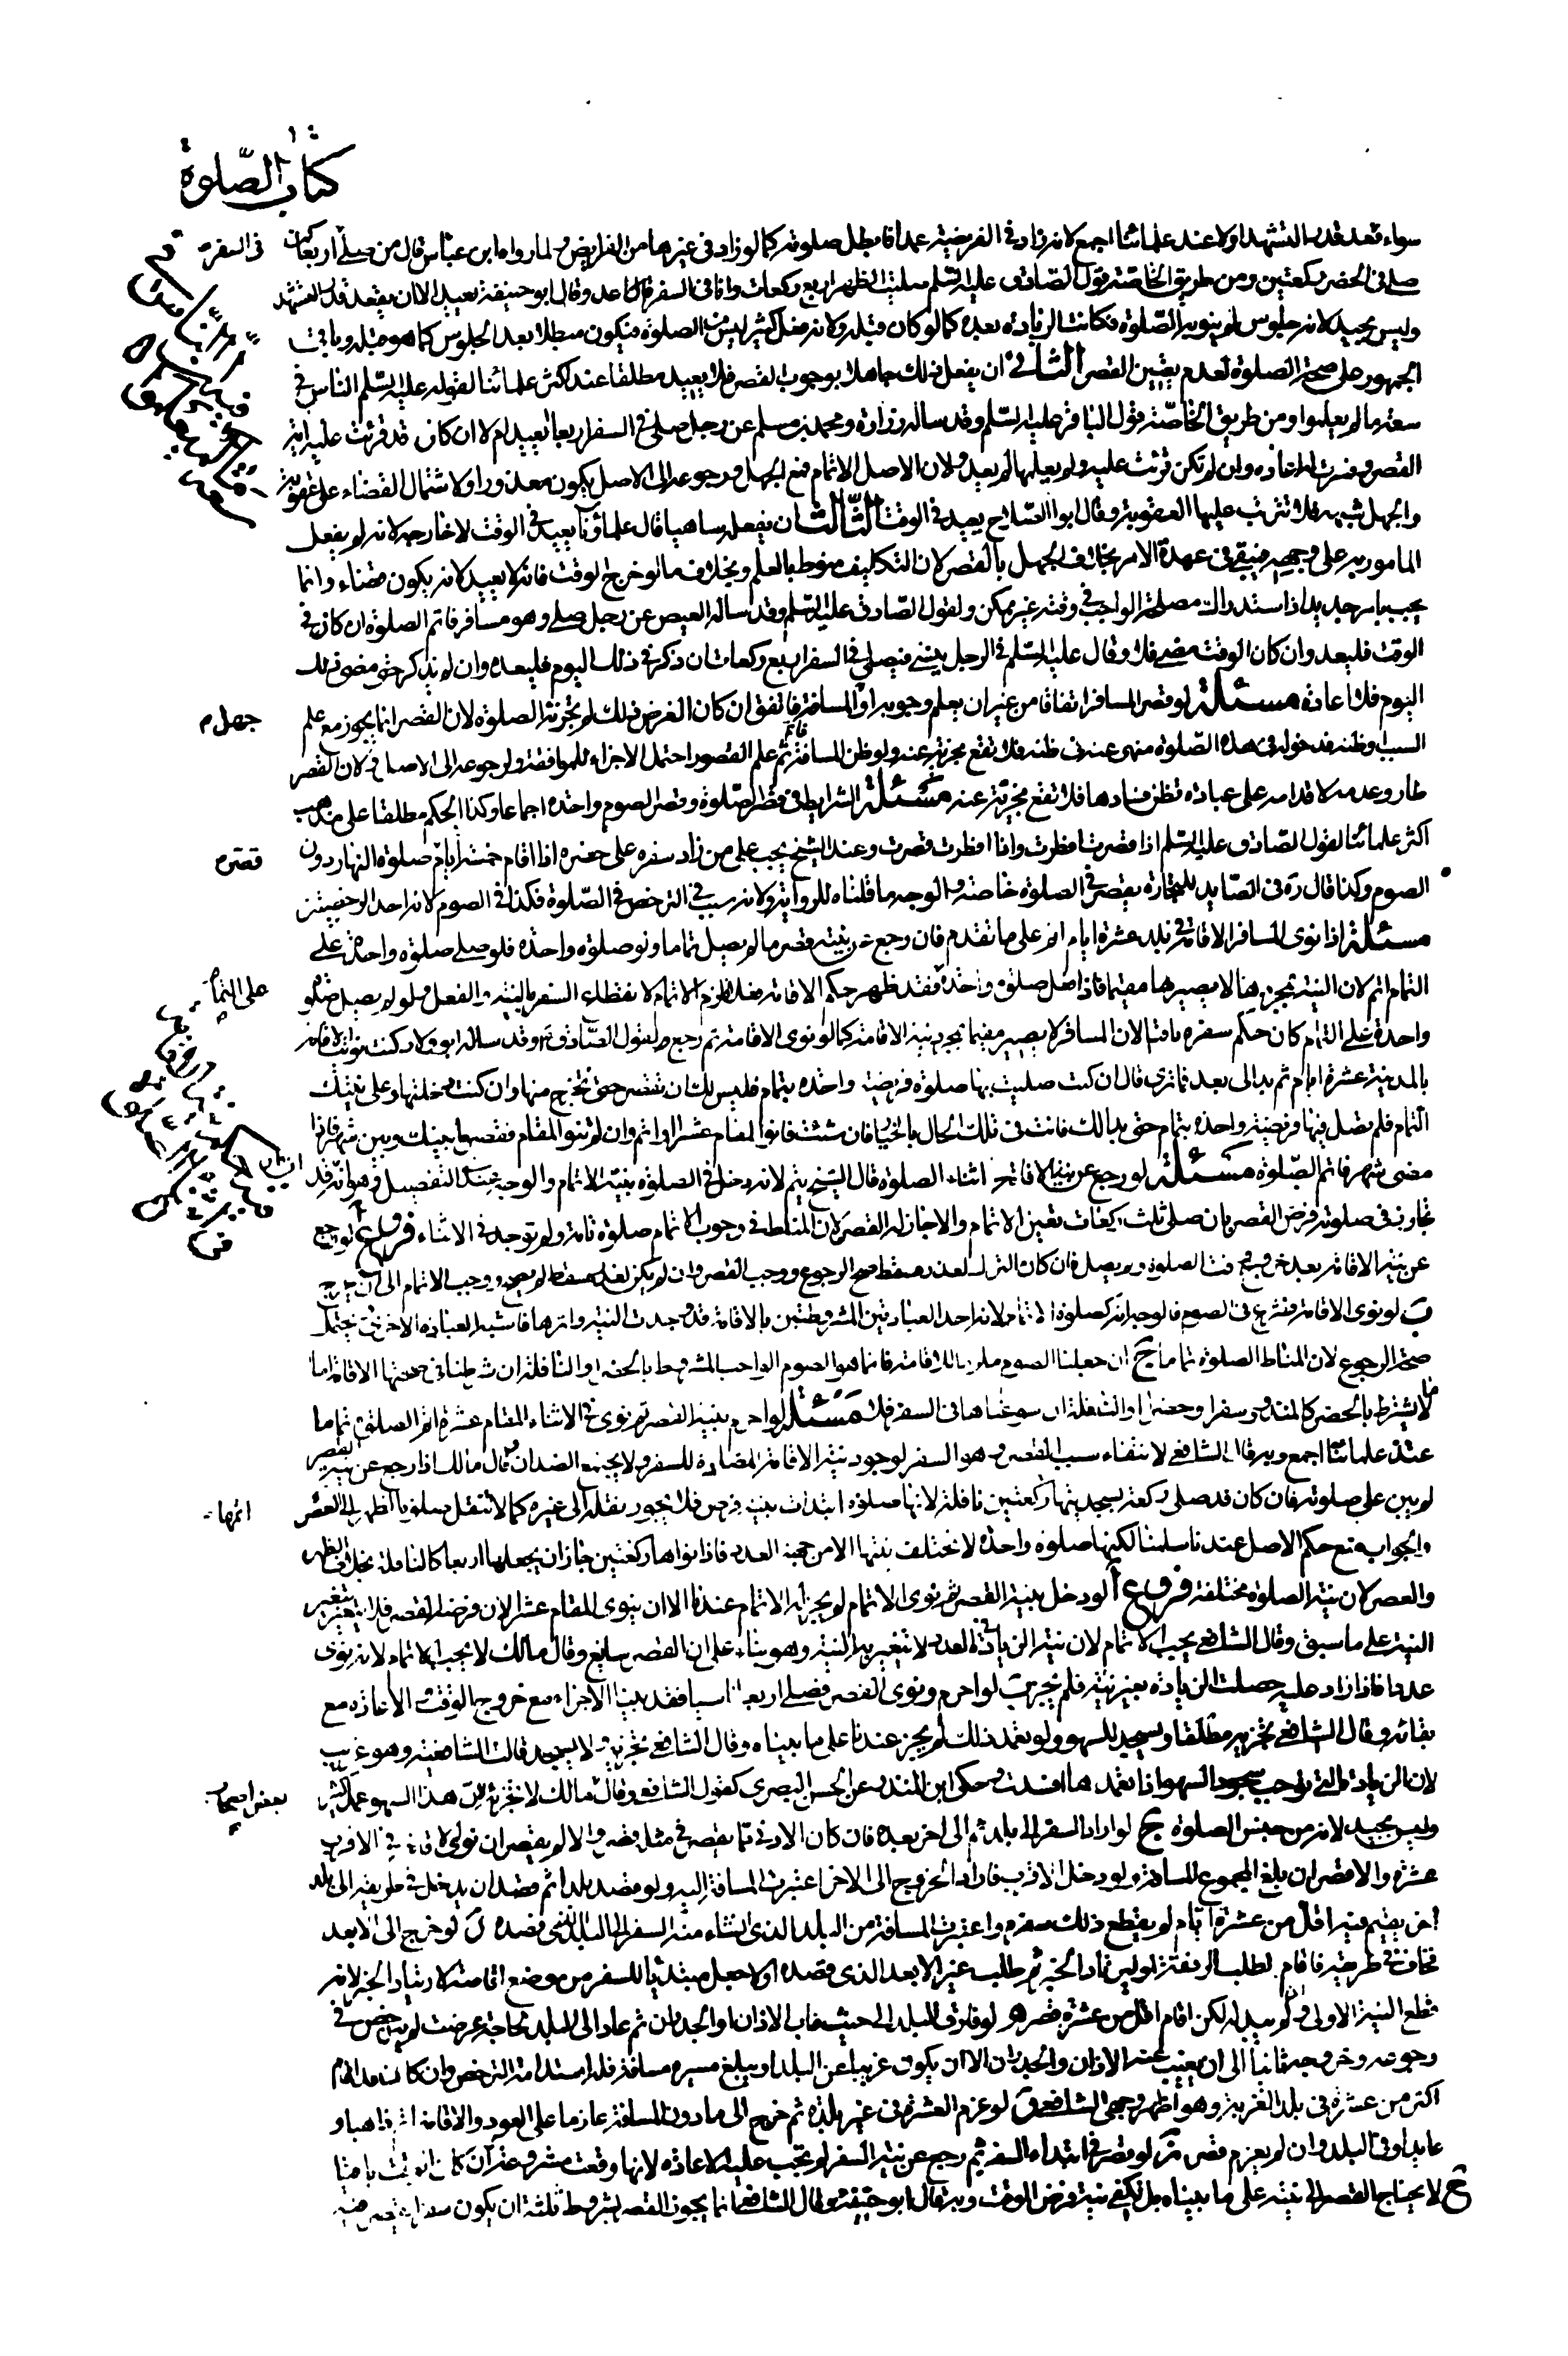 كتاب الصلوة
سواء قعد قدر التشهد اولا عند علمائنا اجمع لانه زاد في الفريضة عمدا فابطل صلوته كما لو زاد في غيرها من الفرايض ولما رواه ابن عباس قال من صلى في السفر اربعا كان كمن
صلى في الحضر ركعتين ومن طريق الخاصة قول الصادق عليه السلم صليت الظهر اربع ركعات وانا في السفر قال اعد وقال ابو حنيفة يعيد الا ان يقعد قدر التشهد
وليس بجيد لانه جلوس لم ينو به الصلوة فكانت الزيادة بعده كما لو كان قبله ولانه فعل كثير ليس من الصلوة فيكون مبطلا بعد الجلوس كما هو قبله وباقي
الجمهور على صحة الصلوة لعدم تعين القصر الثاني ان يفعل ذلك جاهلا بوجوب القصر فلا يعيد مطلقا عند اكثر علمائنا لقوله عليه السلم الناس في
سعة ما لم يعلموا ومن طريق الخاصة قول الباقر عليه السلم وقد ساله زرارة ومحمد بن مسلم عن رجل صلى في السفر اربعا ايعيد ام لا ان كان قد قرئت عليه اية
القصر وفسرت له اعاد وان لم تكن قرئت عليه ولم يعلمها لم يعد ولان الاصل الاتمام فمع الجهل ورجوعه الى الاصل يكون معذورا ولاشتمال القضاء على عقوبة
والجهل شبهة فلا تترتب عليها العقوبة وقال ابو الصلاح يعيد في الوقت الثالث ان يفعله ساهيا قال علماؤنا يعيد في الوقت لا خارجه لانه لم يفعل
المامور به على وجهه فيبقى في عهدة الامر بخلاف الجهل بالقصر لان التكليف منوط بالعلم وبخلاف ما لو خرج الوقت فانه لا يعيد لانه يكون قضاء وانما
يجب بامر جديد اذ استدراك مصلحة الواجب في وقته غير ممكن ولقول الصادق عليه السلم وقد ساله العيص عن رجل صلى وهو مسافر فاتم الصلوة ان كان في
الوقت فليعد وان كان الوقت مضى فلا وقال عليه السلم في الرجل ينسى فيصلي في السفر اربع ركعات ان ذكر في ذلك اليوم فليعد وان لم يذكر حتى مضى ذلك
اليوم فلا اعادة مسئلة لو قصر المسافر اتفاقا من غير ان يعلم وجوبه او جهل المسافة فاتفق ان كان الفرض ذلك لم تجزئه الصلوة لان القصر انما يجوز مع علم
السبب وظنه فدخوله في هذه الصلوة منهي عنه في ظنه فلا تقع مجزئة عنه ولو ظن المسافة فاتم ثم علم القصور احتمل الاجزاء للموافقة ولرجوعه الى الاصل لان القصر
طار وعدمه لاقدامه على عبادة تظن فسادها فلا تقع مجزئة عنه مسئلة الشرايط في قصر الصلوة وقصر الصوم واحدة اجماعا وكذا الحكم مطلقا على مذهب
اكثر علمائنا لقول الصادق عليه السلم اذا قصرت افطرت واذا افطرت قصرت وعند الشيخ يجب على من زاد سفره على حضره اذا اقام خمسة ايام قصر صلوة النهار دون
الصوم وكذا قال ره في الصايد للتجارة يقصر في الصلوة خاصة والوجه ما قلناه للرواية ولانه سبب في الترخص في الصلوة فكذا في الصوم لانه احد الرخصتين
مسئلة اذا نوى المسافر الاقامة في بلد عشرة ايام اتم على ما تقدم فان رجع عن نيته قصر ما لم يصل تماما ولو صلوة واحدة فلو صلى صلوة واحدة على
التمام اتم لان النية بمجردها لا يصير بها مقيما فاذا فعل صلوة واحدة على التمام فقد ظهر حكم الاقامة فعلا فلزم الاتمام لانقطاع السفر بالنية والفعل ولو لم يصل صلوة
واحدة على التمام كان حكم سفره باقيا لان المسافر لا يصير مقيما بمجرد نية الاقامة كما لو نوى الاقامة ثم رجع ولقول الصادق وقد ساله ابو ولاد كنت نويت الاقامة
بالمدينة عشرة ايام ثم بدا لي بعد فما ترى قال ان كنت صليت بها صلوة فريضة واحدة بتمام فليس لك ان تقصر حتى تخرج منها وان كنت دخلتها وعلى نيتك
التمام فلم تصل فيها فريضة واحدة بتمام حتى بدا لك فانت في تلك الحال بالخيار ان شئت فانو المقام عشرا واتم وان لم تنو المقام فقصر ما بينك وبين شهر فاذا
مضى شهر فاتم الصلوة مسئلة لو رجع عن نية الاقامة في اثناء الصلوة قال الشيخ يتم لانه دخل في الصلوة بنية الاتمام والوجه عندي التفصيل وهو انه ان كان قد
تجاوز في صلوته فرض القصر بان صلى ثلث ركعات تعين الاتمام والا جاز له القصر لان المناط في وجوب الاتمام صلوة تامة ولم توجد في الاثناء فروع ا لو رجع
عن نية الاقامة بعد خروج وقت الصلوة ولم يصل فان كان الترك لعذر مسقط صح الرجوع ووجب القصر وان لم يكن لعذر مسقط لم يصح ووجب الاتمام الى ان يخرج
ب لو نوى الاقامة فشرع في الصوم فالوجه انه كصلوة الاتمام لانه احد العبادتين المشروطتين بالاقامة وقد وجدت النية واثرها فاشبه العبادة الاخرى ويحتمل
صحة الرجوع لان المناط الصلوة تماما ج ان جعلنا الصوم ملزما للاقامة فانما هو الصوم الواجب المشروط بالحضر او النافلة ان شرطنا في صحتها الاقامة اما
ما لا يشترط بالحضر كالمنذور سفرا وحضرا او النافلة ان سوغناها في السفر فلا مسئلة لو احرم بنية القصر ثم نوى في الاثناء المقام عشرة اتم الصلوة تماما
عند علمائنا اجمع وبه قال الشافعي لانتفاء سبب القصر وهو السفر لوجود نية الاقامة المضادة للسفر ولا يجتمع الضدان وقال مالك اذا رجع عن نية القصر
لم يبن على صلوته فان كان قد صلى ركعة بسجدتيها اتمها ركعتين نافلة لانها صلوة ابتدات بنية فرض فلا يجوز نقله الى غيره كما لا تنتقل صلوة الظهر الى العصر
والجواب منع حكم الاصل عندنا سلمنا لكنها صلوة واحدة لا تختلف نيتها الا من جهة العدد فاذا نواها ركعتين جاز ان يجعلها اربعا كالنافلة بخلاف الظهر
والعصر لان نية الصلوة مختلفة فروع ا لو دخل بنية القصر ثم نوى الاتمام لم يجز له الاتمام عندنا الا ان ينوي المقام عشرا لان فرضه القصر فلا يتغير بتغير
النية على ما سبق وقال الشافعي يجب الاتمام لان نية الزيادة في العدد لا تتغير به النية وهو بناء على ان القصر سايغ وقال مالك لا يجب الاتمام لانه نوى
عددا فاذا زاد عليه حصلت الزيادة بغير نية فلم تجز ب لو احرم ونوى القصر فصلى اربعا ناسيا فقد بينا الاجزاء مع خروج الوقت والاعادة مع
بقائه وقال الشافعي تجزيه مطلقا ويسجد للسهو ولو تعمد ذلك لم يجز عندنا على ما بيناه وقال الشافعي تجزيه ولا يسجد قالت الشافعية وهو غريب
لان الزيادة التي توجب سجود السهو اذا تعمدها افسدت وحكى ابن المنذر عن الحسن البصري كقول الشافعي وقال بعض اصحاب مالك لا تجزئه لان هذا السهو عمل كثير
وليس بجيد لانه من جنس الصلوة ج لو اراد السفر الى بلد ثم الى اخر بعده فان كان الادنى مما يقصر في مثله قصر والا لم يقصر ان نوى الاقامة في الاقرب
عشرة والا قصر ان بلغ المجموع المسافة ولو دخل الاقرب فاراد الخروج الى الاخر اعتبرت المسافة اليه ولو قصد بلدا ثم قصد ان يدخل في طريقه الى بلد
اخر يقيم فيه اقل من عشرة ايام لم يقطع ذلك سفره واعتبرت المسافة من البلد الذي انشاء منه السفر الى البلد الذي قصده د لو خرج الى الابعد
فخاف في طريقه فاقام لطلب الرفقة او ليرتاد الخبر ثم طلب غير الابعد الذي قصده اولا جعل مبتديا للسفر من موضع اقامته لارتياد الخبر لانه
قطع النية الاولى ولو لم يبد له لكن اقام اقل من عشرة قصر ه لو فارق البلد الى حيث غاب الاذان او الجدران ثم عاد الى البلد لحاجة عرضت لم يترخص في
رجوعه وخروجه ثانيا الى ان يغيب عنه الاذان والجدران الا ان يكون غريبا عن البلد او يبلغ مسيره مسافة فله استدامة الترخص وان كان قد اقام
اكثر من عشرة في بلد الغربة وهو اظهر وجهي الشافعي و لو عزم العشرة في غير بلده ثم خرج الى ما دون المسافة عازما على العود والاقامة اتم ذاهبا و
عايدا وفي البلد وان لم يعزم قصر ز لو قصر في ابتداء السفر ثم رجع عن نية السفر لم تجب عليه الاعادة لانها وقعت مشروعة
ح لا يحتاج القصر الى نيته على ما بيناه بل تكفي نية فرض الوقت وبه قال ابو حنيفة وقال الشافعي انما يجوز القصر بشروط ثلثة ان يكون سفرا